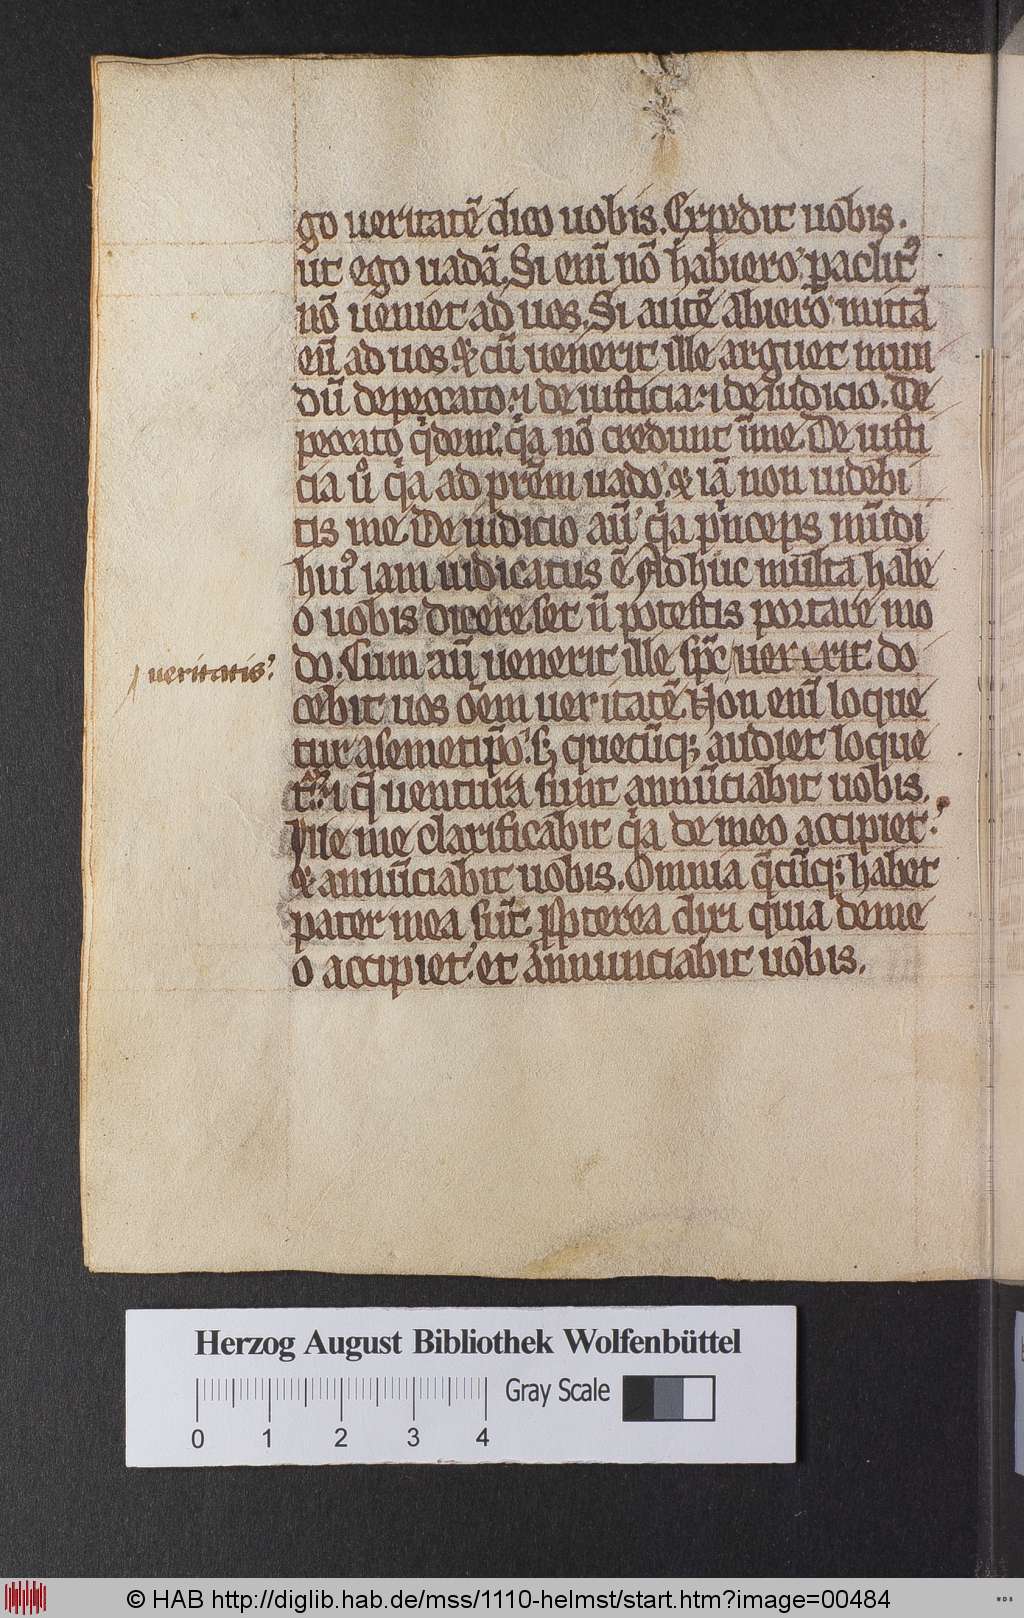 go ueritatē dico uobis. Expedit uobis.
ut ego uadā. Si eni̅ nō habiero paclit᾿
nō ueniet ad uos. Si autē abiero mittā
eū ad uos. & cū uenerit ille arguet mun
dū de peccato. ⁊ de iusticia. ⁊ de iudicio. De
peccato qͥdem. qͥa nō credunt ı̄me. De iusti
cia ů qͥa ad prēm uado. & iā non uidebi
tis me. De iudicio aū qͥa pͥnceps mūdi
huiꝰ iam iudicatus ē Adhuc multa habe
o uobis dicere set n̄ potestis portare mo
ueritatis
do. Cum aū uenerit ille sp̄c do
cebit uos ōem ueritatē. Non eni̅ loque
tur a semetip̄o. sꝫ quecūqꝫ audiet loque
t᷑. ⁊ q̄ uentura sunt annūciabit uobis.
Ille me clarificabit qͥa de meo accipiet.
& annūciabit uobis. Omnia q̄cūqꝫ habet
pater mea sūt. Ꝓpterea dixi quia de me
o accipiet. et annunciabit uobis.
Herzog August Bibliothek Wolfenbüttel
Gray Scale
0 1 2 3 4
© HAB http://diglib.hab.de/mss/1110-helmst/start.htm?image=00484